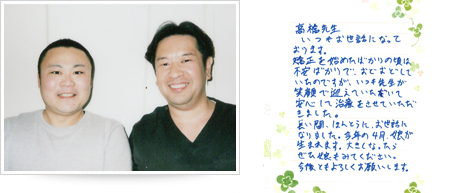 高橋先生
いつもお世話になって
おります。
矯正を始めたばかりの頃は
不安ばかりで、おどおどして
いたのですが、いつも先生が
笑顔で迎えていただいて
安心して治療をさせていただ
きました。
長い間、ほんとうに、お世話に
なりました。今年の4月、娘が
生まれます。大きくなったら
ぜひ娘もみてください。
今後ともよろしくお願いします。